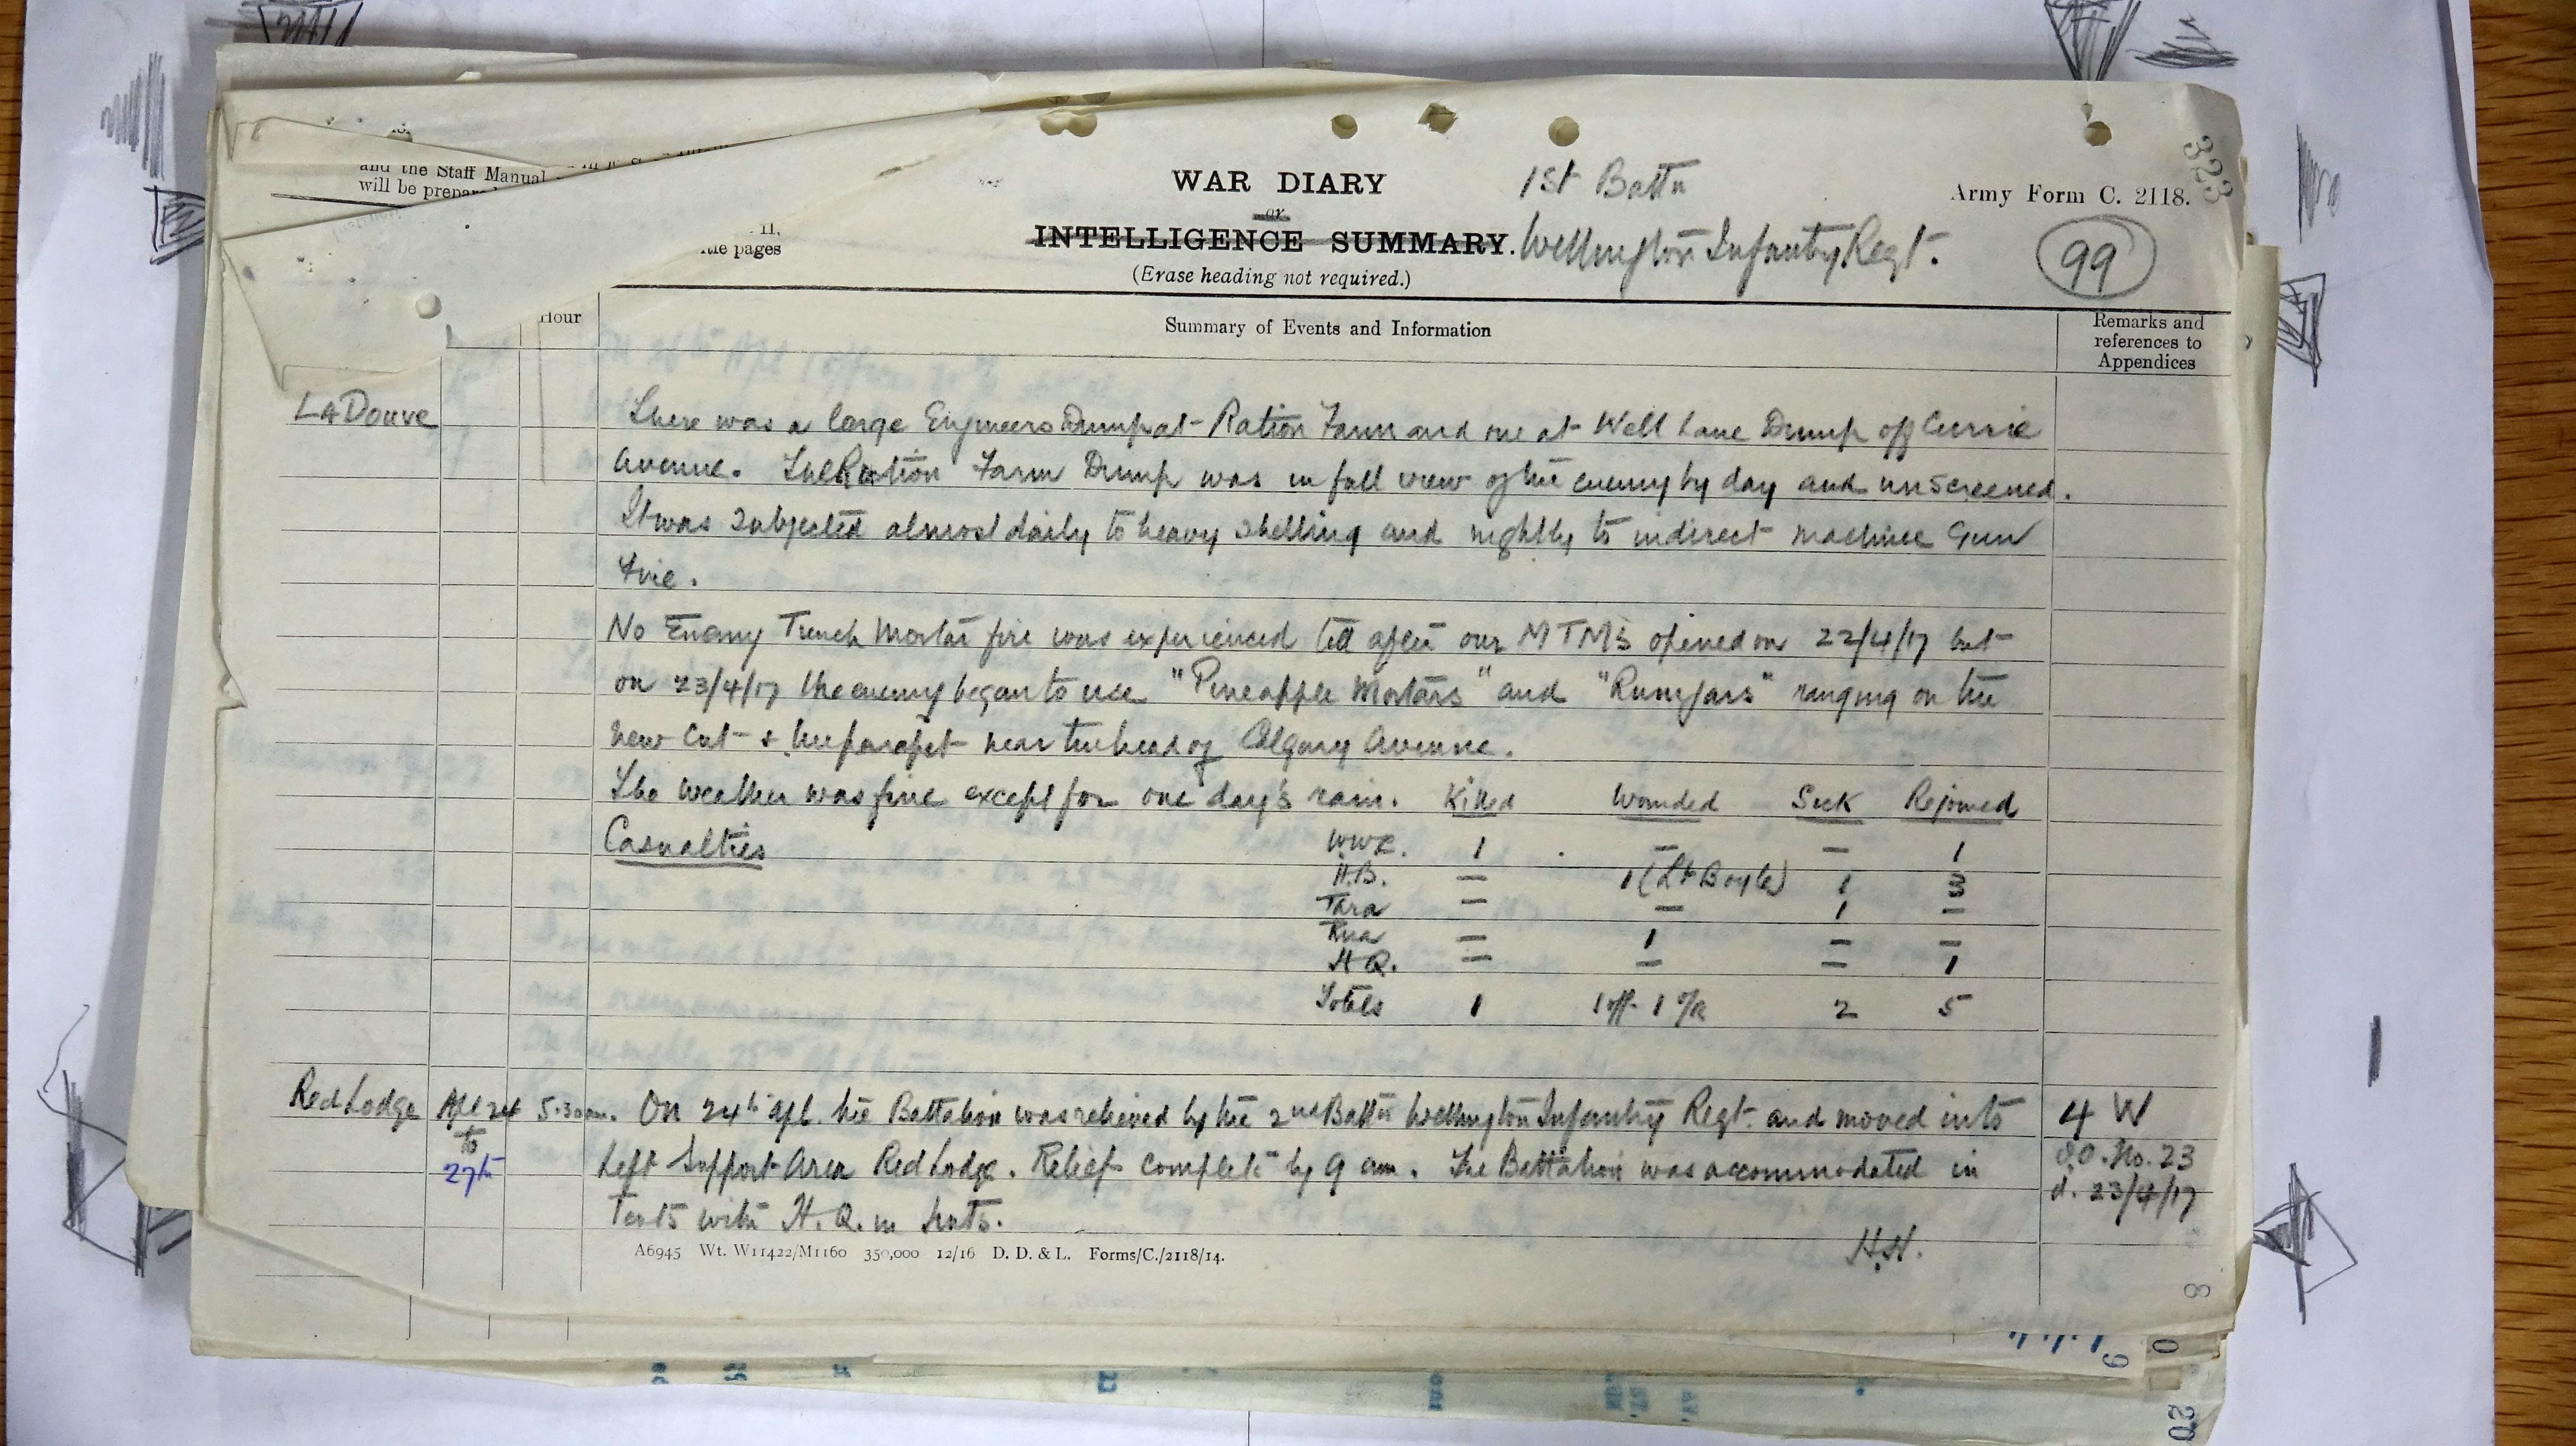 and the Staff Manual
will be prepar
II.
title pages
WAR DIARY
or
INTELLIGENCE SUMMARY.
(Erase heading not required.)
1st Battn
Wellington Infantry Regt.
Army Form C. 2118.
323
99
Hour
Summary of Events and Information
Remarks and
references to
Appendices
La Douve
There was a large Engineers Dump at Ration Farm and one at Well Lane Dump off Currie
Avenue. The Ration Farm Dump was in full view of the enemy by day and unscreened.
It was subjected almost daily to heavy shelling and nightly to indirect machine Gun
Fire.
No Enemy Trench Mortar fire was experienced till after our MTM's opened on 22/4/17 but
on 23/4/17 the enemy began to use "Pineapple Mortars" and "Rumjars" ranging on the
new Cut & the parapet near the head of Calgary Avenue.
The weather was fine except for one day's rain. Killed Wounded Sick Rejoined
Casualties WWC. 1 — — 1
H.B. — 1 (Lt Boyle) 1 3
Tara — — 1 —
Rua — 1 — —
H Q. — — — 1
Totals 1 1 off 1 O/R 2 5
Red Lodge Apl 24 5.30am. On 24th Apl. the Battalion was relieved by the 2nd Battn Wellington Infantry Regt. and moved into 4 W
to
27th Left Support Area Red Lodge. Relief complete by 9 am. The Battalion was accommodated in O.O. No. 23
d. 23/4/17
Tents with H.Q. in huts.
H.H.
A6945 Wt. W11422/M1160 350,000 12/16 D. D. & L. Forms/C./2118/14.
8
0
20